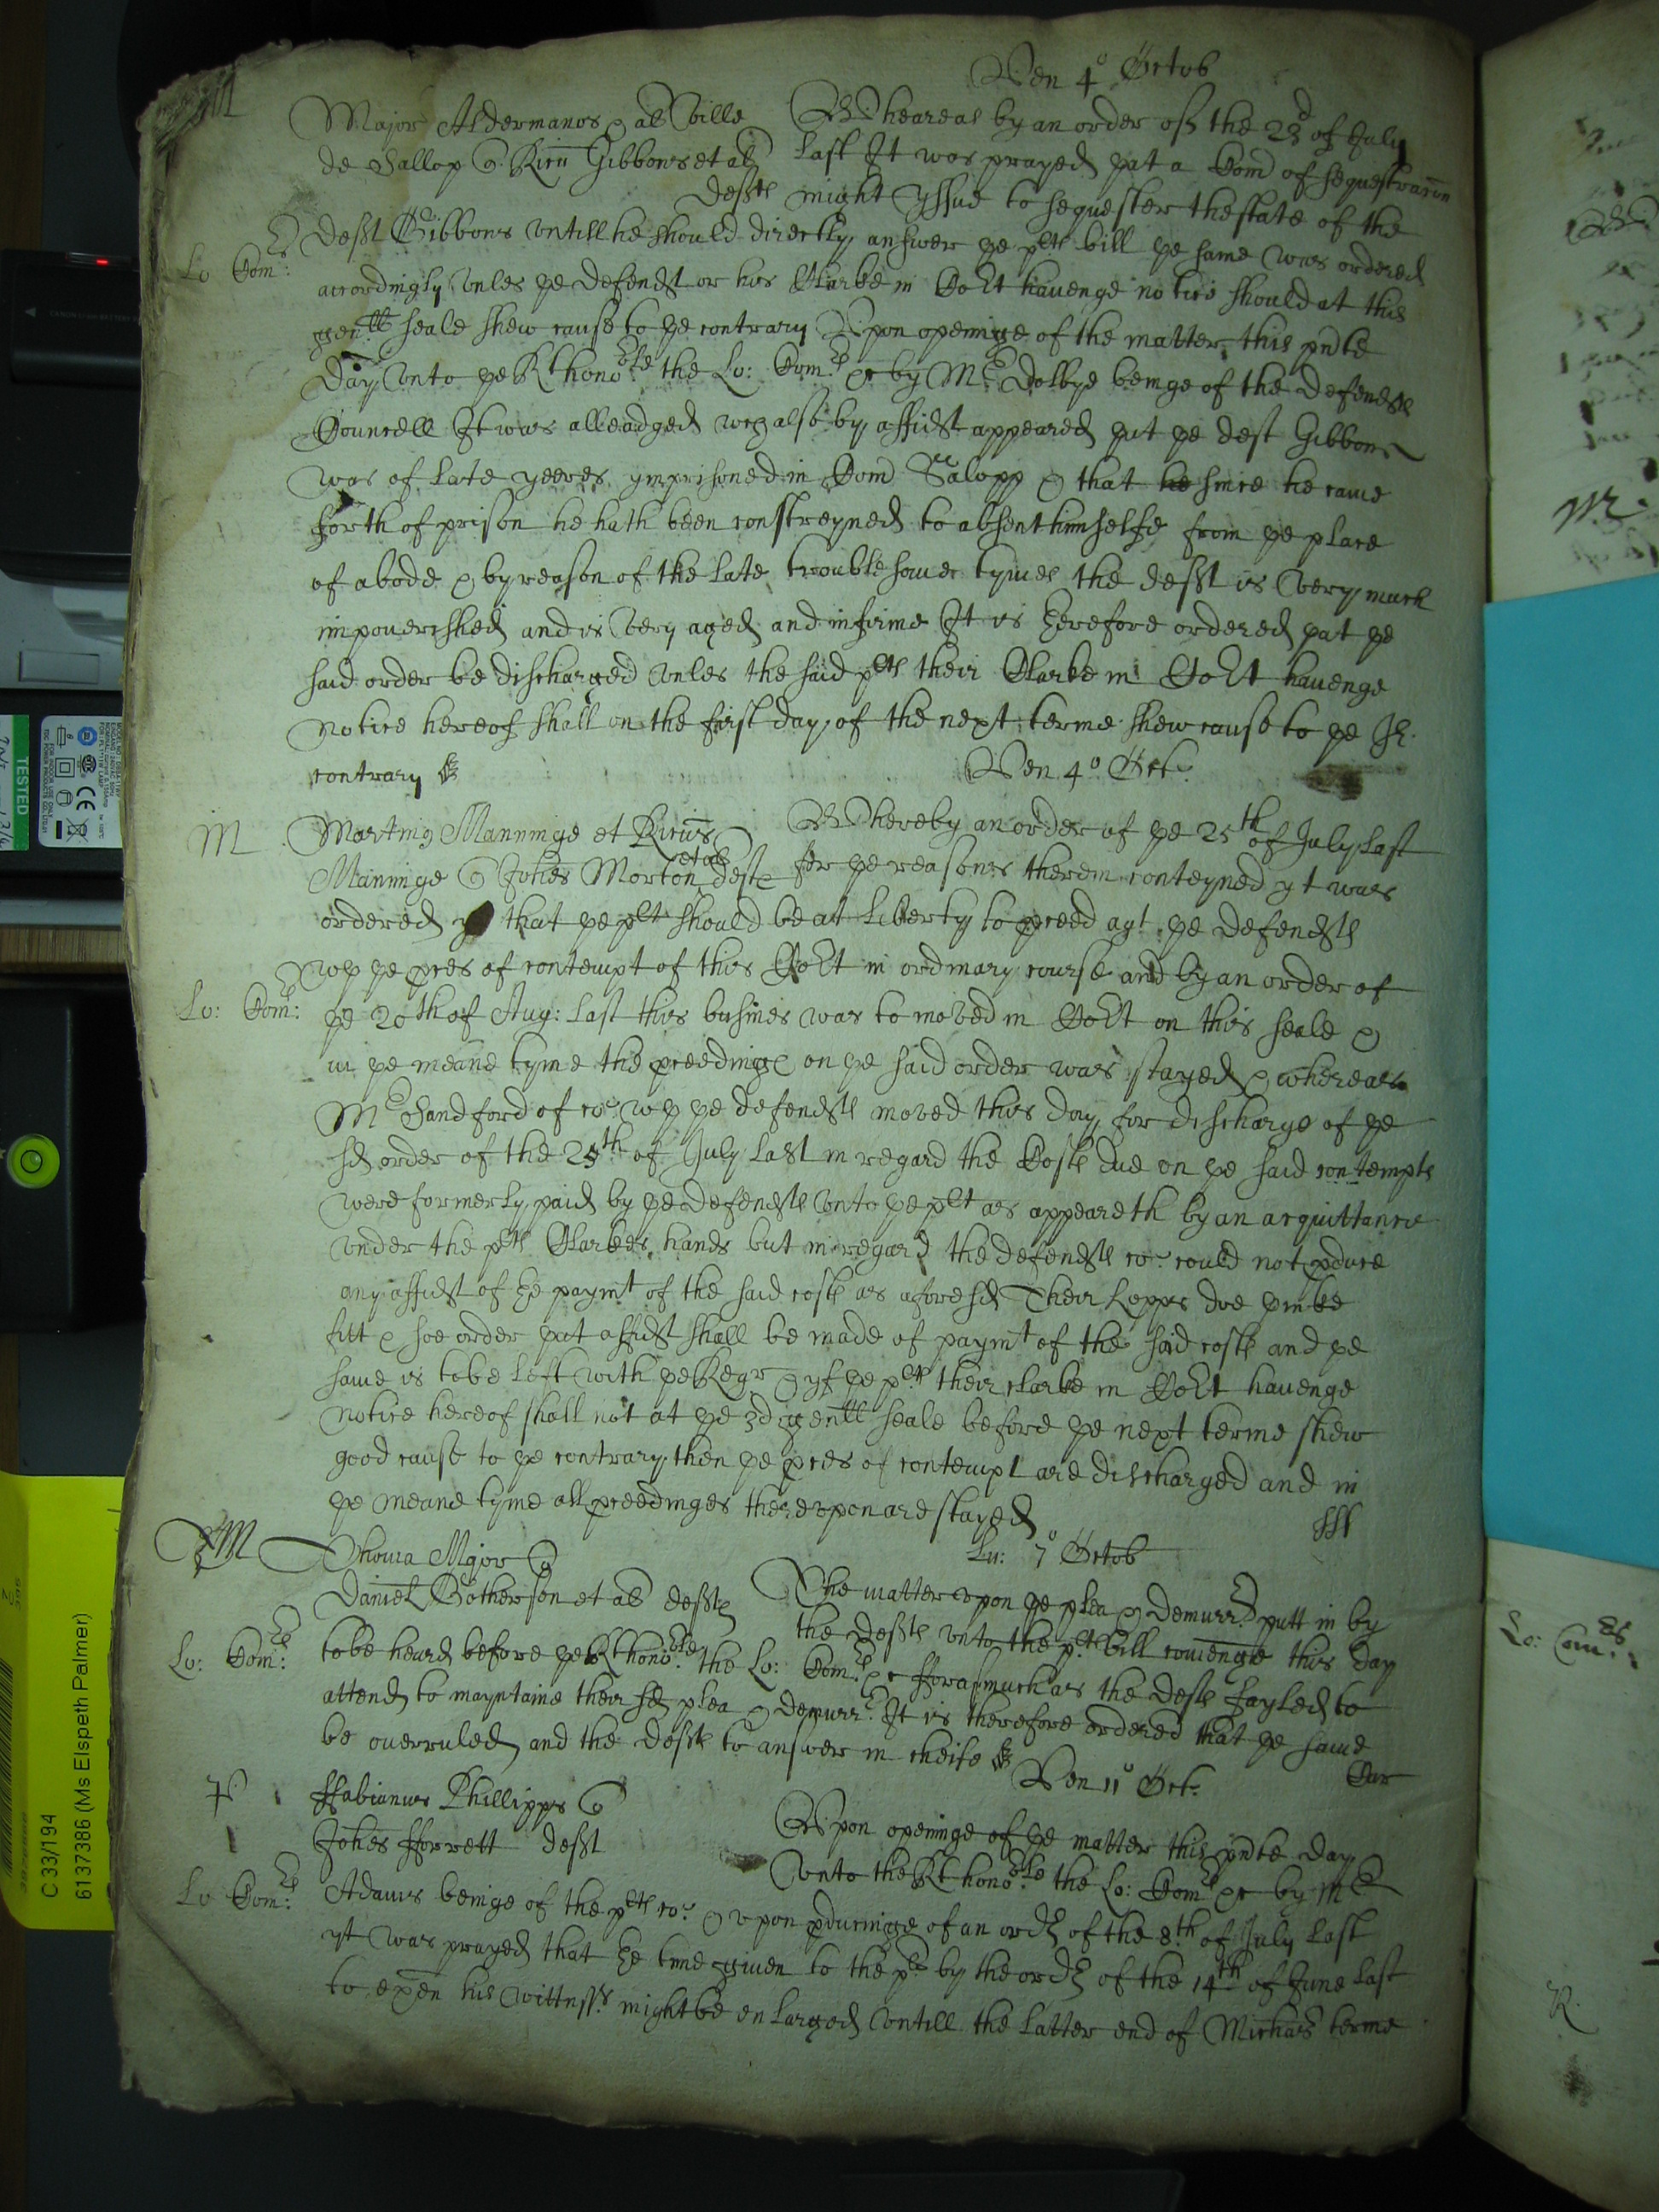 Ven 4o Octob
M
Major Aldermanos & al Ville Wheareas by an order of the 23d of July
de Sallop Ricu Gibbons et al last It was prayed yat a Com of sequestracon
Defts might yssue to sequester thestate of the
Deft Gibbons untill he should directly answer ye plts bill ye same was ordered
Lo Comrs:
accordingly unles ye Defendt or his Clarke in Court havenge notice should at this
genll seale shew cause to ye contrary Upon openinge of the matter this pnte
Day unto ye Rt honoble the Lo: Comrs &c by Mr Dolbye beinge of the Defendts
Councell It was alleadged wch also by affidt appeared yat ye deft Gibbons
was of late yeeres ymprisoned in Com Salopp & that he since he came
forth of prison he hath been constreyned to absent himselfe from ye place
of abode & by reason of the late troublesome tymes the deft is very much
impoverished and is very aged and infirme It is therefore ordered yat ye
said order be discharged unles the said plts their Clarke in Court havenge
notice hereof shall on the first day of the next terme shew cause to ye
contrary
Ven 4o Oct:
M Martin Manninge et Ricus Whereby an order of ye 25th of July last
Manninge Johes Morton et al deft for ye reasons therein conteyned yt was
ordered that ye plt should be at liberty to pceed agt ye Defendts
wth ye pces of contempt of this Court in ordinary course and by an order of
Lo: Comrs: ye 20th of Aug: last this busines was to moved in Court on this seale &
in ye meane tyme the pceedings on ye said order was stayed & whereas
Mr Sandford of co: wth ye defendts moved this day for discharge of ye
sd order of the 25th of July last in regard the Costs due on ye said contempts
were formerly paid by ye defendts unto ye plt as appeareth by an acquittance
under the plts Clarkes hands but in regard the defendts co: could not pduce
any affidt of the paymt of the said costs as aforesd Their Lopps doe thinke
fitt & soe order yat affidt shall be made of paymt of the said costs and ye
same is to be left with ye Regr & yf ye plts their clarke in Court havenge
notice hereof shall not at ye 3d genll seale before ye next terme shew
good cause to ye contrary then ye pces of contempt are discharged and in
ye meane tyme all pceedinges thereupon are stayed
M Thoma Major Lu: 7o Octob
Daniel Gotherson et al defts The matter upon ye plea & demurr putt in by
the defts unto the plts bill cominge this day
Lo: Comrs: to be heard before ye Rt honoble the Lo: Comrs &c fforasmuch as the defts fayled to
attend to mayntaine their sd plea & demurr It is therefore ordered that ye same
be overruled and the defts to answer in cheife
Ven 11o Oct:
P ffabianus Phillipps
Johes fforrett deft Upon openinge of ye matter this pnte day
unto the Rt honoble the Lo: Comrs &c by Mr
Lo Comrs: Adams beinge of the plts co: & upon pducinge of an ordr of the 8th of July last
yt was prayed that the time given to the plt by the ordr of the 14th of June last
to exen his wittnesses might be enlarged untill the latter end of Michas terme
Lo: Comrs:
R.
TESTED
C 33/194
61373386 (Ms Elspeth Palmer)